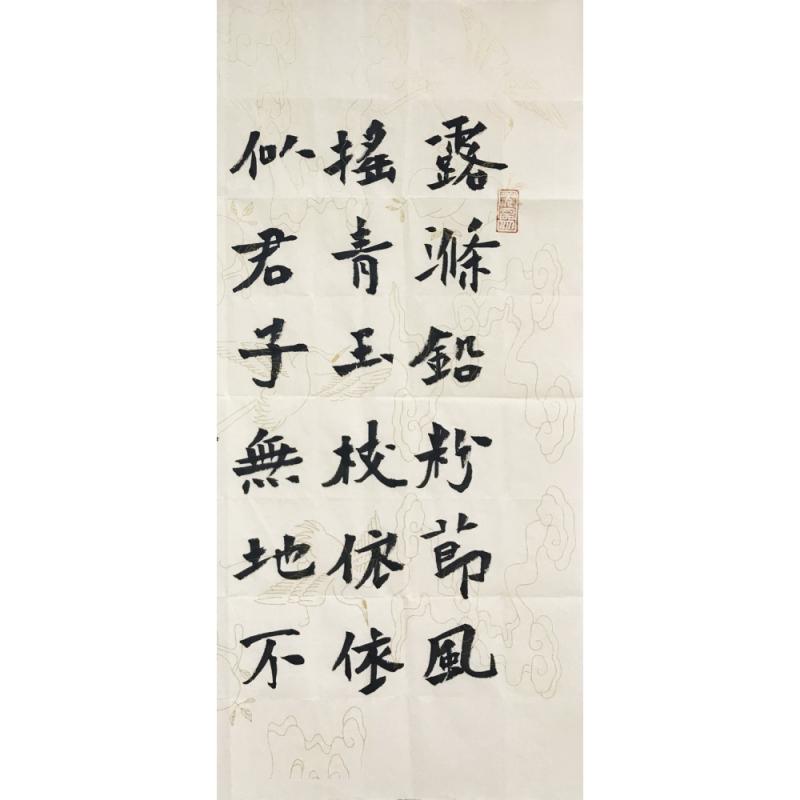 露滌鉛粉節風
搖青玉枝依依
似君子無地不